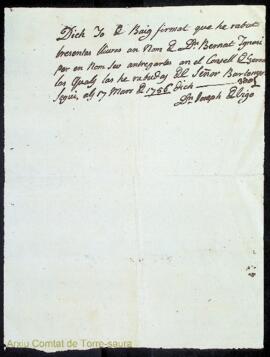 Dich Jo Baix firmat que he rabut
trescentas lliuras en nom de Dn. Bernat Ignasi
per en nom seu entregarlas en el Consell
las Quals las he rabudas del Señor Bartomeu
Seguí, als 17 Mars de 1756 dich
Dr. Joseph
Arxiu Comtat de Torre-saura